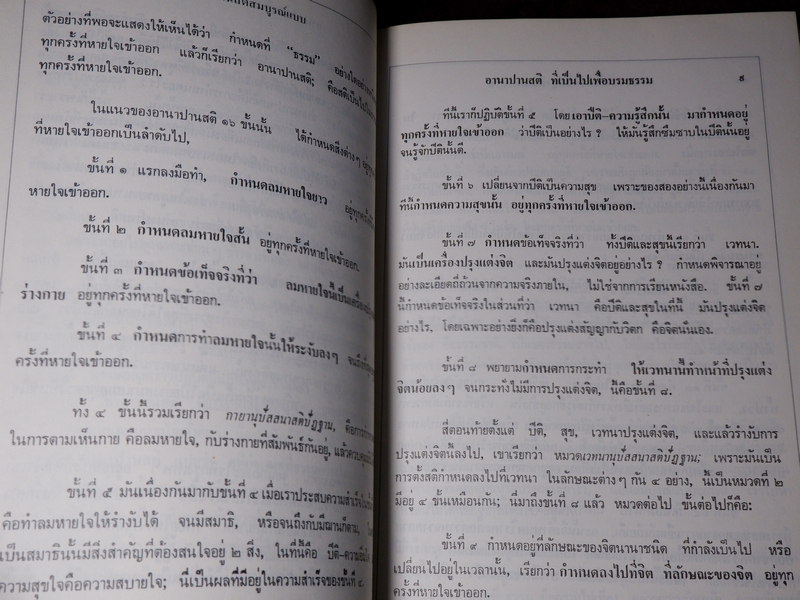 สมบูรณ์แบบ
ตัวอย่างที่พอจะแสดงให้เห็นได้ว่า กำหนดที่ “ธรรม” อย่างใดอย่าง
ทุกครั้งที่หายใจเข้าออก แล้วก็เรียกว่า อานาปานสติ; คือสติเป็นไป
ทุกครั้งที่หายใจเข้าออก.
ในแนวของอานาปานสติ ๑๖ ขั้นนั้น ได้กำหนดสิ่งต่างๆ
ที่หายใจเข้าออกเป็นลำดับไป,
ขั้นที่ ๑ แรกลงมือทำ, กำหนดลมหายใจยาว อยู่ทุกครั้ง
หายใจเข้าออก.
ขั้นที่ ๒ กำหนดลมหายใจสั้น อยู่ทุกครั้งที่หายใจเข้าออก.
ขั้นที่ ๓ กำหนดข้อเท็จจริงที่ว่า ลมหายใจนี้เป็นเครื่อง
ร่างกาย อยู่ทุกครั้งที่หายใจเข้าออก.
ขั้นที่ ๔ กำหนดการทำลมหายใจนั้นให้ระงับลงๆ
ครั้งที่หายใจเข้าออก.
ทั้ง ๔ ขั้นนี้รวมเรียกว่า กายานุปัสสนาสติปัฏฐาน,
ในการตามเห็นกาย คือลมหายใจ, กับร่างกายที่สัมพันธ์กันอยู่,
ขั้นที่ ๕ มันเนื่องกันมากับขั้นที่ ๔ เมื่อเราประสบความสำเร็จ
คือทำลมหายใจให้รำงับได้ จนมีสมาธิ, หรือจนถึงกับมีฌานก็ตาม,
เป็นสมาธินั้นมีสิ่งสำคัญที่ต้องสนใจอยู่ ๒ สิ่ง, ในที่นี้คือ ปีติ-ความ
ความสุขใจคือความสบายใจ; นี่เป็นผลที่มีอยู่ในความสำเร็จของขั้นที่ ๔.
อานาปานสติ ที่เป็นไปเพื่อบรมธรรม
ทีนี้เราก็ปฏิบัติขั้นที่ ๕ โดยเอาปีติ-ความรู้สึกนั้น มากำหนดอยู่
ทุกครั้งที่หายใจเข้าออก ว่าปีติเป็นอย่างไร ? ให้มันรู้สึกซึมซาบในปีตินั้นอยู่
จนรู้จักปีตินั้นดี.
ขั้นที่ ๖ เปลี่ยนจากปีติเป็นความสุข เพราะของสองอย่างนี้เนื่องกันมา
ทีนี้กำหนดความสุขนั้น อยู่ทุกครั้งที่หายใจเข้าออก.
ขั้นที่ ๗ กำหนดข้อเท็จจริงที่ว่า ทั้งปีติและสุขนี้เรียกว่า เวทนา.
มันเป็นเครื่องปรุงแต่งจิต และมันปรุงแต่งจิตอยู่อย่างไร ? กำหนดพิจารณาอยู่
อย่างละเอียดถี่ถ้วนจากความจริงภายใน, ไม่ใช่จากการเรียนหนังสือ. ขั้นที่ ๗
นี้กำหนดข้อเท็จจริงในส่วนที่ว่า เวทนา คือปีติและสุขในที่นี้ มันปรุงแต่งจิต
อย่างไร, โดยเฉพาะอย่างยิ่งก็คือปรุงแต่งสัญญากับวิตก คือจิตนั่นเอง.
ขั้นที่ ๘ พยายามกำหนดการกระทำ ให้เวทนานี้ทำหน้าที่ปรุงแต่ง
จิตน้อยลงๆ จนกระทั่งไม่มีการปรุงแต่งจิต, นี้คือขั้นที่ ๘.
สี่ตอนท้ายตั้งแต่ ปีติ, สุข, เวทนาปรุงแต่งจิต, และแล้วรำงับการ
ปรุงแต่งจิตนี้ลงไป, เขาเรียกว่า หมวดเวทนานุปัสสนาสติปัฏฐาน; เพราะมันเป็น
การตั้งสติกำหนดลงไปที่เวทนา ในลักษณะต่างๆ กัน ๔ อย่าง, นี้เป็นหมวดที่ ๒
มีอยู่ ๔ ขั้นเหมือนกัน; นี่มาถึงขั้นที่ ๘ แล้ว หมวดต่อไป ขั้นต่อไปก็คือ:
ขั้นที่ ๙ กำหนดอยู่ที่ลักษณะของจิตนานาชนิด ที่กำลังเป็นไป หรือ
เปลี่ยนไปอยู่ในเวลานั้น, เรียกว่า กำหนดลงไปที่จิต ที่ลักษณะของจิต อยู่ทุก
ครั้งที่หายใจเข้าออก.